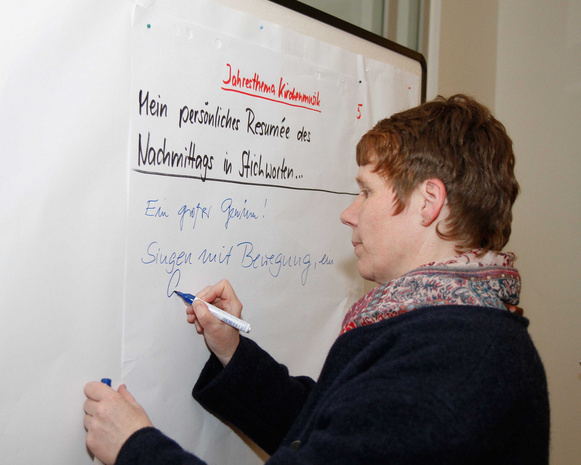 Jahresthema Kirchenmusik
5
Mein persönliches Resumée des
Nachmittags in Stichworten...
Ein großer Gewinn!
Singen mit Bewegung, ein